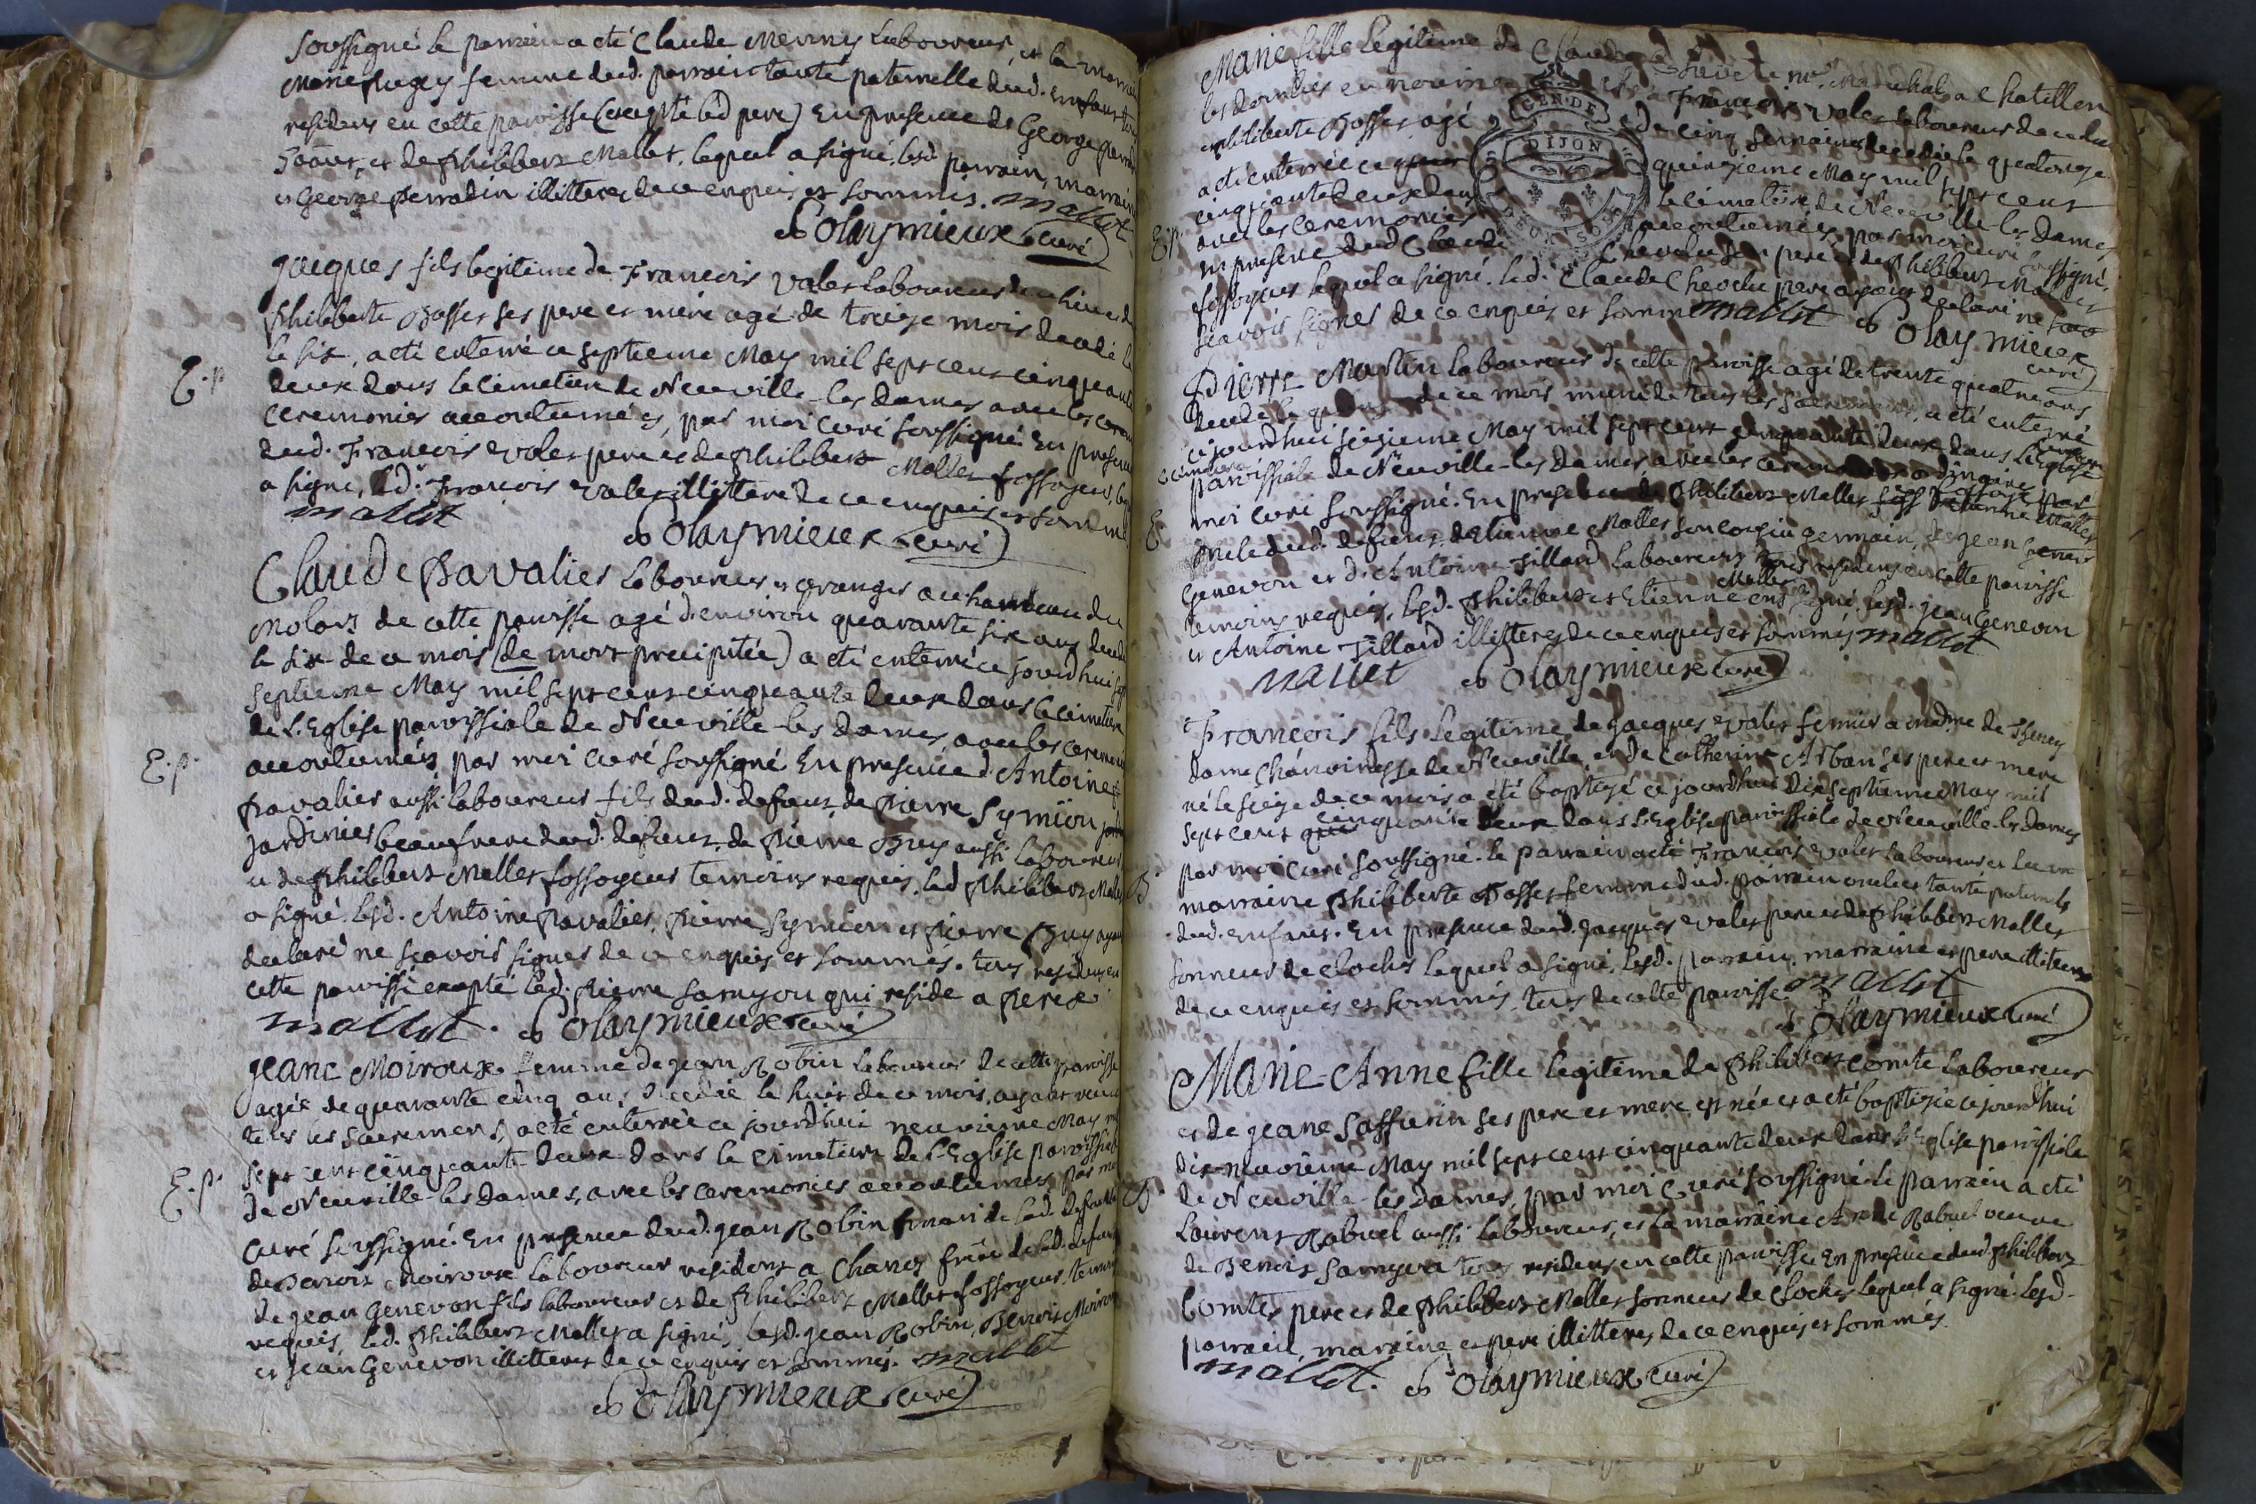 soussigné le parrein a eté Claude Merny laboureur, et la marrei
Marie Pugey femme dud. parrein tante paternelle dud. enfant tous
residens en cette paroisse (excepté led pere) En presence de George perradin
et de philibert Mallet, lequel a signé, lesd. parrein, marraine
et George perradin illitteres de ce enquis et sommés. mallet
Olaymieux curé
jacques fils legitime de Francois Volet laboureur
philiberte Bosset ses pere et mere agé de treize mois decedé le
le six, a eté enterré ce septieme May mil sept cent cinquante
E.p.
deux dans le cimetiere de Neuville-les dames avec les
ceremonies accoutumées, par moi curé soussigné En presence
dud. Francois volet pere et de philibert Mallet fossoyeur, lequel
a signé, led. Francois volet illittere de ce enquis et sommé
mallet
Olaymieux curé
Claude Pavalier laboureur et granger au hameau du
Molard de cette paroisse agé d'environ quarante six ans decedé
le six de ce mois (de mort precipitée) a eté enterré ce jourd'hui
septieme May mil sept cent cinquante deux dans le cimetiere
de L'Eglise paroissiale de Neuville-les dames, avec les ceremonies
E.p.
accoutumées par moi curé soussigné En presence d'Antoine
Pavalier aussi laboureur fils dud. defunt, de Pierre Symion
jardinier beaufrere dud. defunt, de Pierre Buy aussi laboureur
et de philibert Mallet fossoyeur temoins requis, led philibert Mallet
a signé. lesd. Antoine Pavalier, Pierre Symion et Pierre Buy ayant
declaré ne scavoir signer de ce enquis et sommés. tous residens en
cette paroisse excepté led. Pierre Samyon qui reside a Perex
mallet. Olaymieux curé
jeane Moiroux femme de jean Robin laboureur de cette paroisse
agée de quarante cinq ans, decedée le huit de ce mois, ayant recu
tous les sacremens, a eté enterrée ce jourd'hui neuvieme May mil
sept cent cinquante-deux dans le cimetiere de L'Eglise paroissiale
E.p.
de Neuville-les dames, avec les ceremonies accoutumées par moi
curé soussigné. En presence dud. jean Robin mari de lad. defunte
de Benoit Moiroux laboureur resident a Chanes frere de lad. defunte
de jean Genevon fils laboureur et de philibert Mallet fossoyeur, temoins
requis, led. philibert Mallet a signé, lesd. jean Robin, Benoit Moiroux
et jean Genevon illitteres de ce enquis et sommés. mallet
Olaymieux curé
Marie fille legitime de Claude Marechal a Chatillon
les dombes en nourrice Francois Volet laboureur de ce lieu
et philiberte Bosset, agé de cinq semaines decedée le quatorze
a eté enterrée ce quinzieme May mil sept cent
cinquante deux dans le cimetiere de Neuville-les dames
E.p.
avec les ceremonies accoutumées, par moi curé soussigné,
en presence dud Claude pere et de philibert Mallet
fossoyeur lequel a signé. led. Claude pere ayant declaré ne
scavoir signer de ce enquis et sommé mallet Olaymieux
curé
Pierre Martin laboureur de cette paroisse agé de trente quatre ans
decedé le de ce mois muni de tous les sacremens, a eté enterré
ce jourd'hui seizieme May mil sept cent cinquante deux dans
paroissiale de Neuville-les dames avec les ceremonies ordinaires par
moi curé soussigné. En presence de philibert Mallet
oncle dud. defunt, d'Etienne Mallet son cousin germain, de jean
Genevon et d'Antoine Tillard laboureurs tous residens en cette paroisse
temoins requis, lesd. philibert et Etienne Mallet ont signé, lesd. jean Genevon
et Antoine Tillard illitteres de ce enquis et sommés mallet
mallet Olaymieux curé
Francois fils legitime de jacques volet fermier a madme de
dame chanoinesse de Neuville, et de Catherine Arban ses pere et mere
né le seize de ce mois a eté baptizé ce jourd'hui dix septieme May mil
sept cent cinquante deux dans L'Eglise paroissiale de Neuville-les dames
B.
par moi curé soussigné. le parrein a eté Francois volet laboureur et la
marraine philiberte Bosset femme dud. parrein oncle et tante paternels
dud. enfant. En presence dud. jacques volet pere et de philibert Mallet
sonneur de cloches lequel a signé, lesd. parrein, marraine et pere illitteres
de ce enquis et sommés. tous de cette paroisse. mallet
Olaymieux curé
Marie-Anne fille legitime de philibert Comte laboureur
et de jeane Saffurin ses pere et mere est née et a eté baptizée ce jourd'hui
dix-neuvieme May mil sept cent cinquante deux dans L'Eglise paroissiale
B.
de Neuville-les dames, par moi curé soussigné. le parrein a eté
Laurent Rabuel aussi laboureur, et la marraine Anne Rabuel veuve
de Benoit Samyon tous residens en cette paroisse En presence dud. philibert
Comte pere et de philibert Mallet sonneur de cloches lequel a signé lesd.
parrein, marraine et pere illitteres de ce enquis et sommés.
mallet. Olaymieux curé
GEN. DE
DIJON
DEUX SOLS